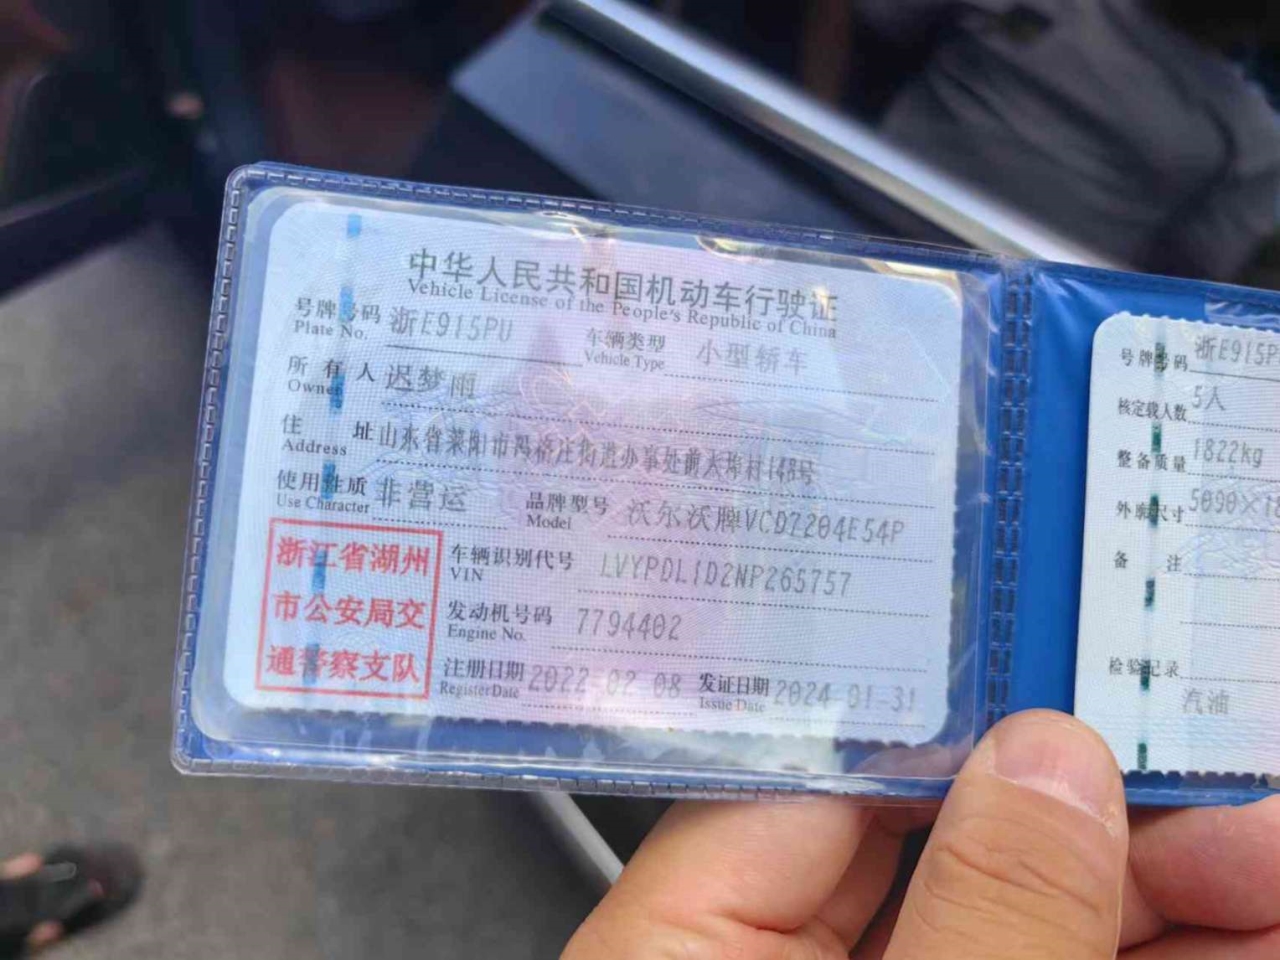 中华人民共和国机动车行驶证
Vehicle License of the People's Republic of China
号牌号码 浙E915PU 车辆类型 小型轿车
Plate No. Vehicle Type
所有人 迟梦雨
Owner
住址 山东省莱阳市冯格庄街道办事处前大埠村148号
Address
使用性质 非营运 品牌型号 沃尔沃牌VCD7204E54P
Use Character Model
浙江省湖州
市公安局交
通警察支队
车辆识别代号 LVYPDL1D2NP265757
VIN
发动机号码 7794402
Engine No.
注册日期 2022-02-08 发证日期 2024-01-31
Register Date Issue Date
号牌号码 浙E915P
核定载人数 5人
整备质量 1822kg
外廓尺寸 5090×18
备注
检验记录
汽油